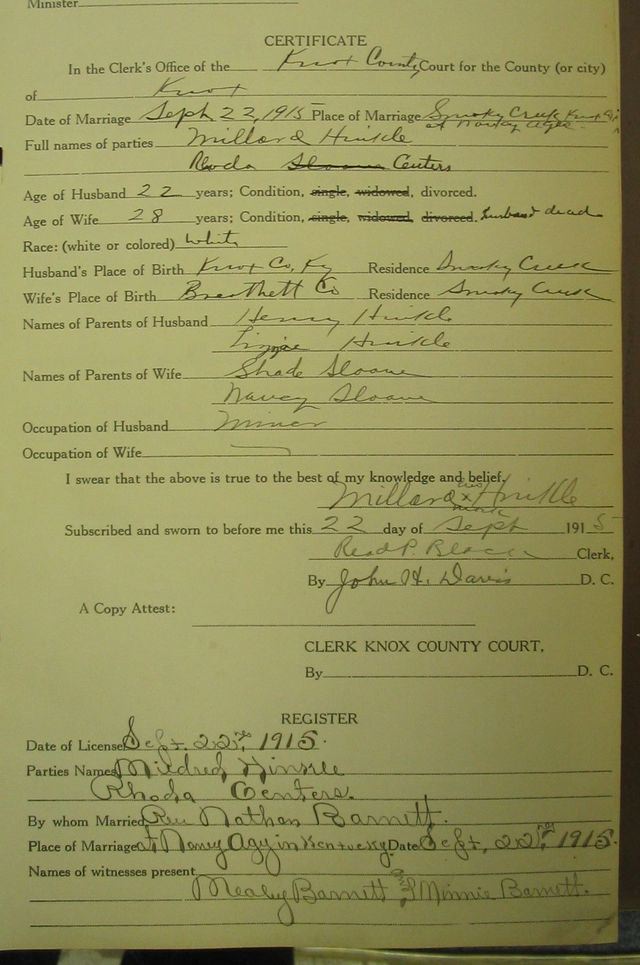 Minister
CERTIFICATE
In the Clerk's Office of the Knox County Court for the County (or city)
of Knox
Date of Marriage Sept 22, 1915 Place of Marriage Smoky Creek Knox
at Nancy Agees
Full names of parties Millard Hinkle
Roda Sloane Centers
Age of Husband 22 years; Condition, single, widowed, divorced.
Age of Wife 28 years; Condition, single, widowed, divorced. husband dead
Race: (white or colored) White
Husband's Place of Birth Knox Co, Ky Residence Smoky Creek
Wife's Place of Birth Breathett Co Residence Smoky Creek
Names of Parents of Husband Henry Hinkle
Lizzie Hinkle
Names of Parents of Wife Shade Sloane
Nancy Sloane
Occupation of Husband Miner
Occupation of Wife
I swear that the above is true to the best of my knowledge and belief.
Millard his x mark Hinkle
Subscribed and sworn to before me this 22 day of Sept 1915
Read P. Black Clerk,
By John H. Davis D. C.
A Copy Attest:
CLERK KNOX COUNTY COURT,
By D. C.
REGISTER
Date of License Sept. 22nd, 1915.
Parties Names Mildred Hinkle
Rhoda Centers.
By whom Married Rev Nathan Barnett.
Place of Marriage at Nancy Agy in Kentucky Date Sept, 22nd, 1915.
Names of witnesses present
Mealy Barnett and Minnie Barnett.